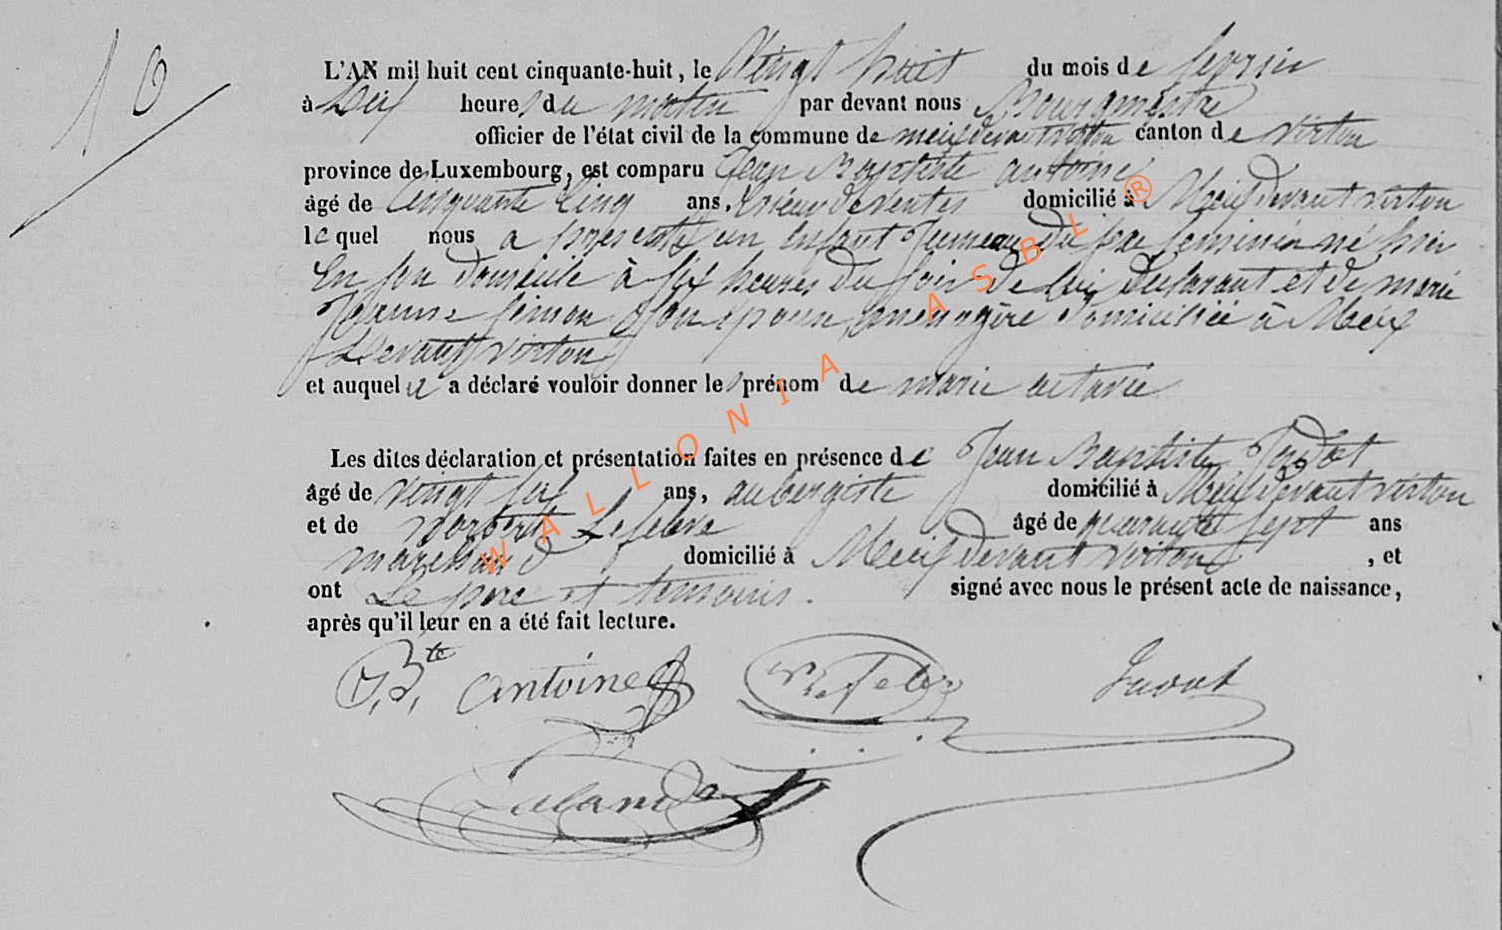 10
L'AN mil huit cent cinquante-huit, le Vingt huit du mois de fevrier
à dix heures du matin par devant nous Bourgmestre
officier de l'état civil de la commune de meix devant virton canton de virton
province de Luxembourg, est comparu Jean Baptiste antoine
âgé de Cinquante Cinq ans, domicilié à Meix devant virton
le quel nous a présenté un enfant Jumeau du sexe feminin né hier
En son domicile à six heures du soir de lui declarant et de marie
Jeanne simon son epouse menagère domiciliée à Meix
Devant virton
et auquel il a déclaré vouloir donner les prénom de marie octavie
Les dites déclaration et présentation faites en présence de Jean Baptiste
âgé de vingt six ans, aubergiste domicilié à Meix devant virton
et de norbert Lefebvre âgé de quarante sept ans
marechal domicilié à Meix devant virton, et
ont Le pere et temoins. signé avec nous le présent acte de naissance,
après qu'il leur en a été fait lecture.
J,B,te antoine
WALLONIA ASBL ®